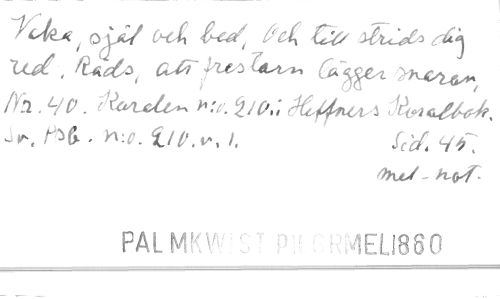 Vaka, själ och bed, Och till strids dig
red. Räds, att frestarn lägger snaran,
Nr. 40. Koralen n:o. 210. i Hæffners Koralbok.
Sv. Psb. n:o. 210. v. 1. Sid. 45.
mel-not.
PALMKWIST PILGRMEL1860